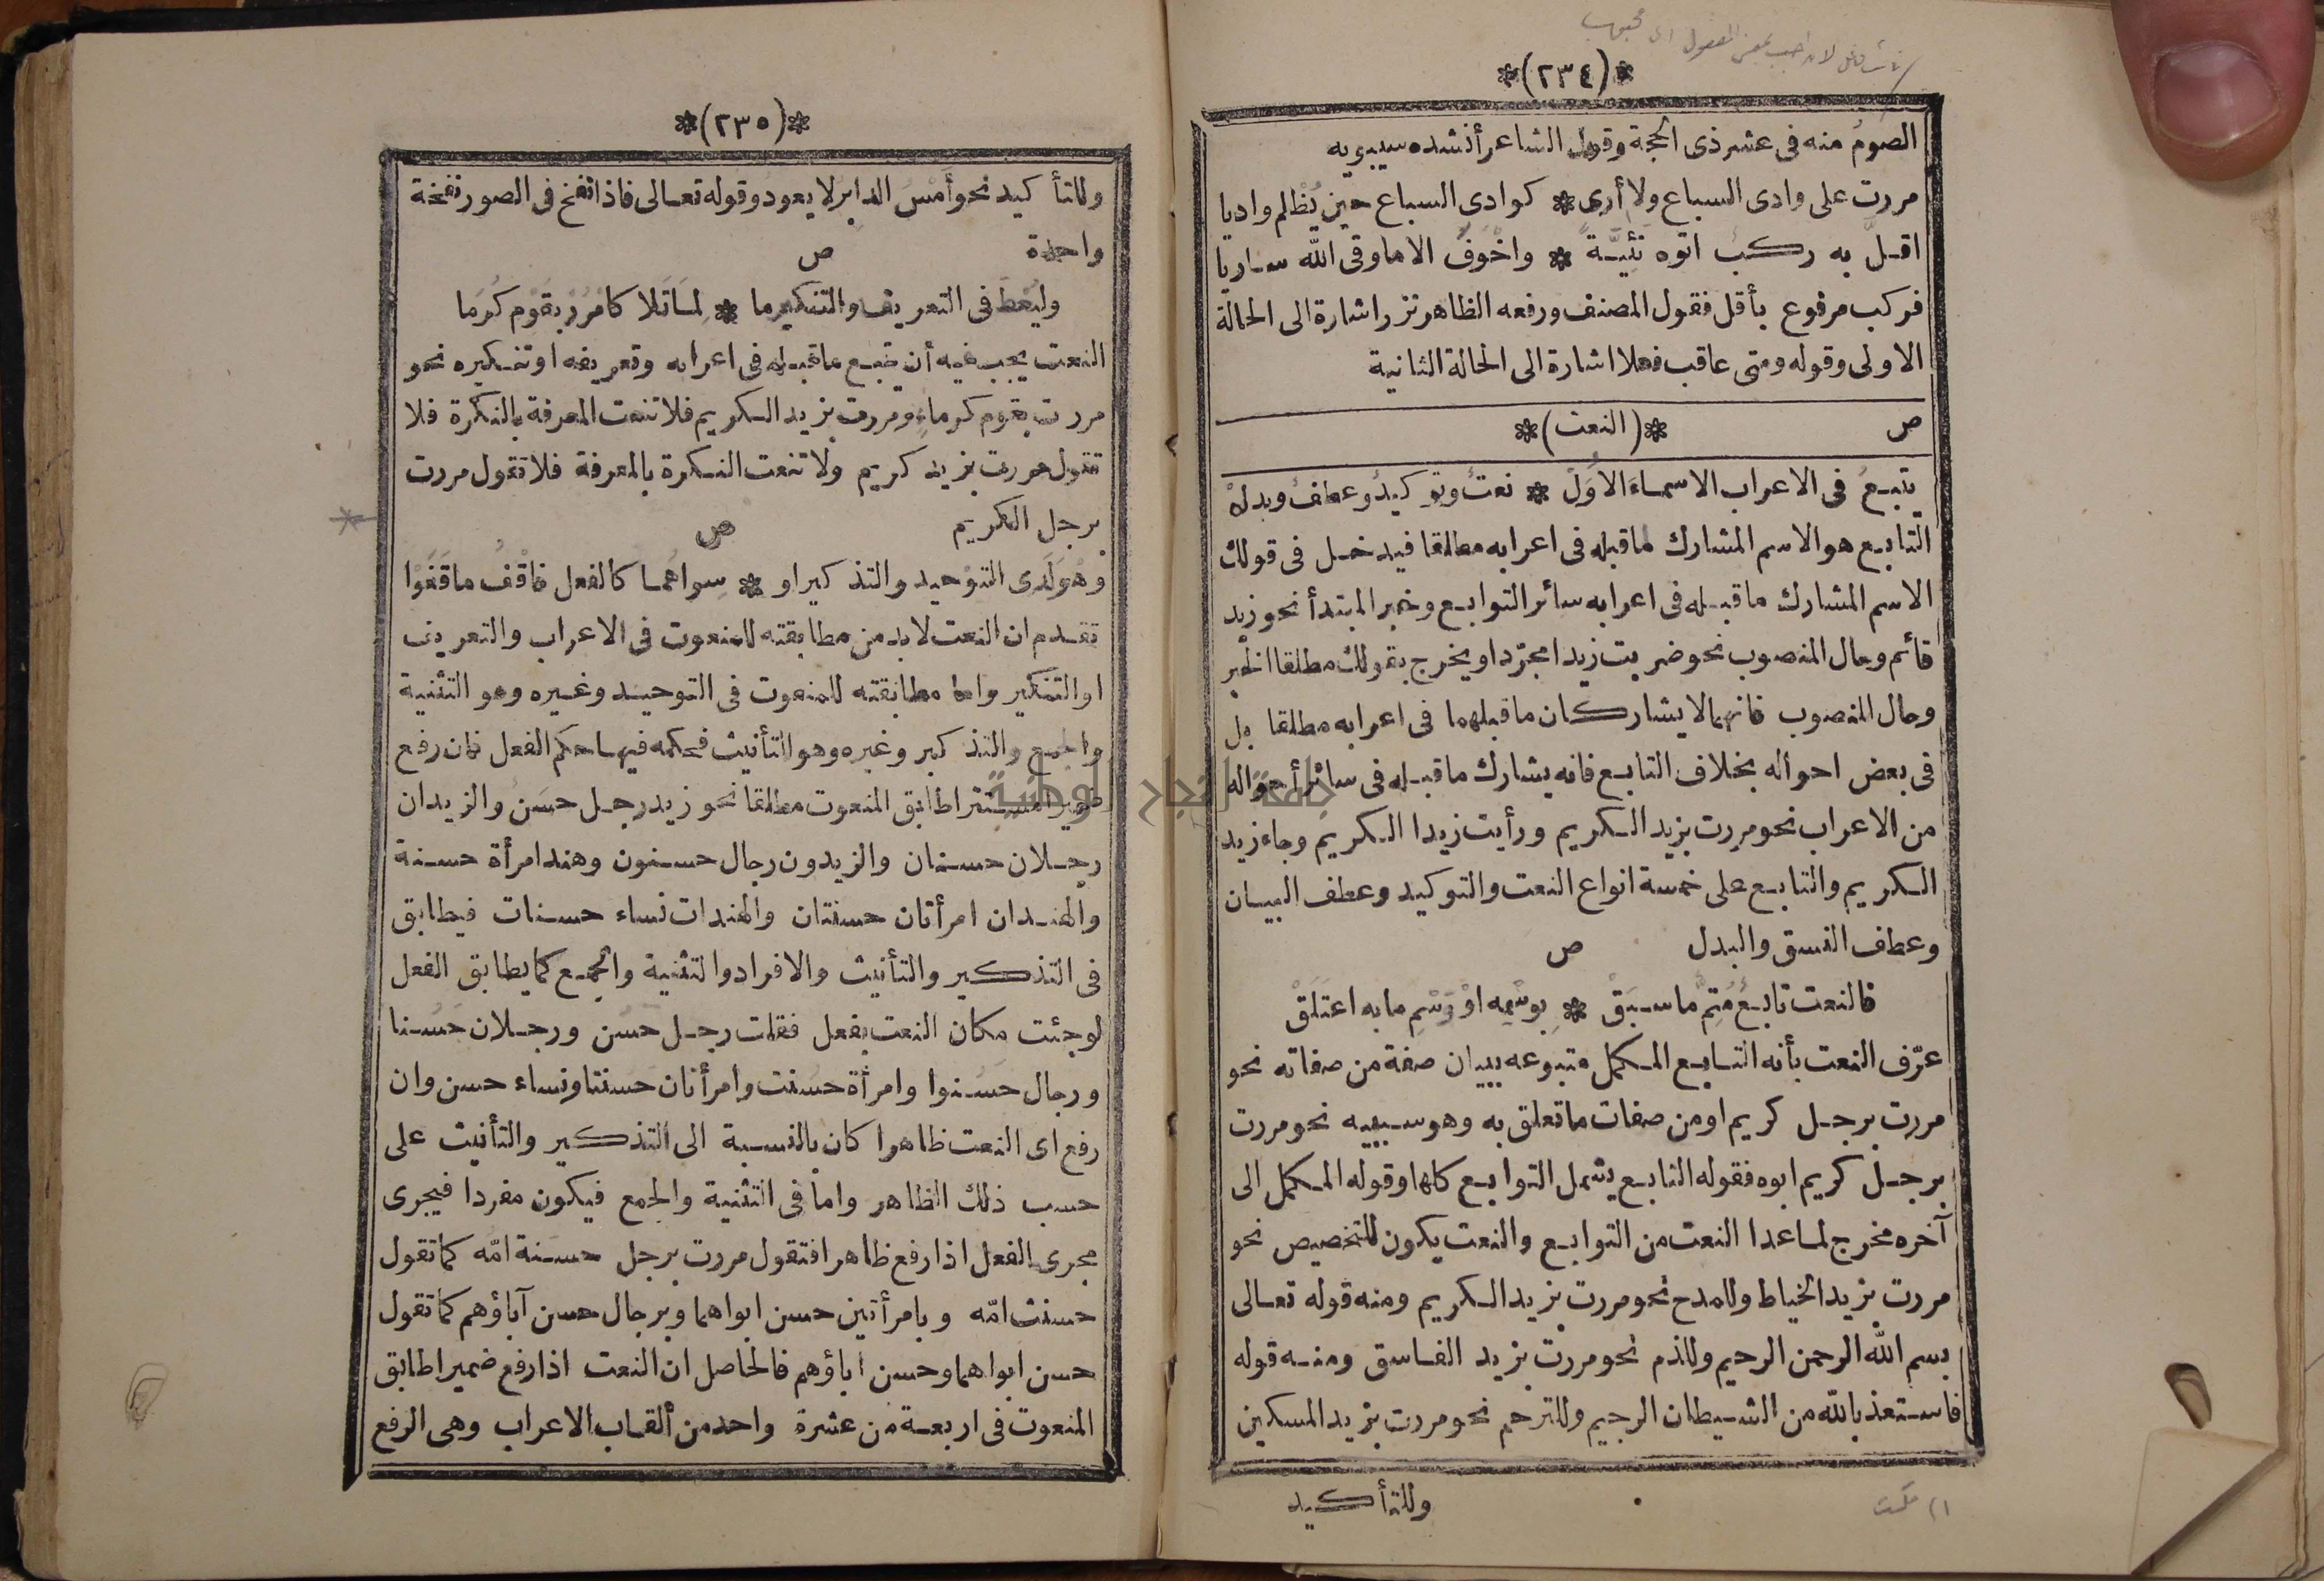 *(٢٣٤)*
الصومُ منه فى عشر ذى الحجة وقول الشاعر أنشده سيبويه
مررت على وادى السباع ولا أرى * كوادى السباع حين يُظْلم واديا
اقلَّ به ركبٌ اتوه تَئِيَّةً * واخْوَفَ الا ما وقى اللّٰه ساريا
فركب مرفوع بأقل فقول المصنف ورفعه الظاهر نزر اشارة الى الحالة
الاولى وقوله ومتى عاقب فعلا اشارة الى الحالة الثانية
ص *(النعت)*
يتبعُ فى الاعراب الاسماءَ الاُوَلْ * نعتٌ وتوكيدٌ وعطفٌ وبدلْ
التابع هو الاسم المشارك لما قبله فى اعرابه مطلقا فيدخل فى قولك
الاسم المشارك ما قبله فى اعرابه سائر التوابع وخبر المبتدأ نحو زيد
قائم وحال المنصوب نحو ضربت زيدا مجرّدا ويخرج بقولك مطلقا الخبر
وحال المنصوب فانهما لا يشاركان ما قبلهما فى اعرابه مطلقا بل
فى بعض احواله بخلاف التابع فانه يشارك ما قبله فى سائر أحواله
من الاعراب نحو مررت بزيد الكريم ورأيت زيدا الكريم وجاء زيد
الكريم والتابع على خمسة انواع النعت والتوكيد وعطف البيان
وعطف النسق والبدل ص
فالنعت تابعٌ مُتِمٌّ ما سبَقْ * بوسْمِه اوْ وَسْمِ ما به اعتَلَقْ
عرّف النعت بأنه التابع المكمل متبوعه ببيان صفة من صفاته نحو
مررت برجل كريم او من صفات ما تعلق به وهو سببيه نحو مررت
برجل كريم ابوه فقوله التابع يشمل التوابع كلها وقوله المكمل الى
آخره مخرج لما عدا النعت من التوابع والنعت يكون للتخصيص نحو
مررت بزيد الخياط وللمدح نحو مررت بزيد الكريم ومنه قوله تعالى
بسم اللّٰه الرحمن الرحيم وللذم نحو مررت بزيد الفاسق ومنه قوله
فاستعذ باللّٰه من الشيطان الرجيم وللترحم نحو مررت بزيد المسكين
وللتأكيد
*(٢٣٥)*
وللتأكيد نحو أمْسِ الدابرُ لا يعود وقوله تعالى فاذا نفخ فى الصور نفخة
واحدة ص
وليُعْطَ فى التعريف والتنكير ما * لِمَا تَلا كامْرُرْ بقَوْم كُرَما
النعت يجب فيه أن يتبع ما قبله فى اعرابه وتعريفه او تنكيره نحو
مررت بقوم كرماء ومررت بزيد الكريم فلا تنعت المعرفة بالنكرة فلا
تقول مررت بزيد كريم ولا تنعت النكرة بالمعرفة فلا تقول مررت
برجل الكريم ص
وهْوَ لَدى التوْحيد والتذكير او * سِواهُما كالفعل فاقْفُ ما قَفَوْا
تقدم ان النعت لابد من مطابقته للمنعوت فى الاعراب والتعريف
او التنكير واما مطابقته للمنعوت فى التوحيد وغيره وهو التثنية
والجمع والتذكير وغيره وهو التأنيث فحكمه فيها حكم الفعل فان رفع
ضميرا مستترا طابق المنعوت مطلقا نحو زيد رجل حسَنٌ والزيدان
رجلان حسنان والزيدون رجال حسنون وهند امرأة حسنة
والهندان امرأتان حسنتان والهندات نساء حسنات فيطابق
فى التذكير والتأنيث والافراد والتثنية والجمع كما يطابق الفعل
لو جئت مكان النعت بفعل فقلت رجل حسُن ورجلان حَسُنا
ورجال حَسُنوا وامرأة حسُنت وامرأتان حَسنتا ونساء حسن وان
رفع اى النعت ظاهرا كان بالنسبة الى التذكير والتأنيث على
حسب ذلك الظاهر واما فى التثنية والجمع فيكون مفردا فيجرى
مجرى الفعل اذا رفع ظاهرا فتقول مررت برجل حسَنة امّه كما تقول
حسنت امّه وبامرأتين حسن ابواهما وبرجال حسن آباؤهم كما تقول
حسن ابواهما وحسن اباؤهم فالحاصل ان النعت اذا رفع ضميرا طابق
المنعوت فى اربعة من عشرة واحد من ألقاب الاعراب وهى الرفع
جامعة النجاح الوطنية